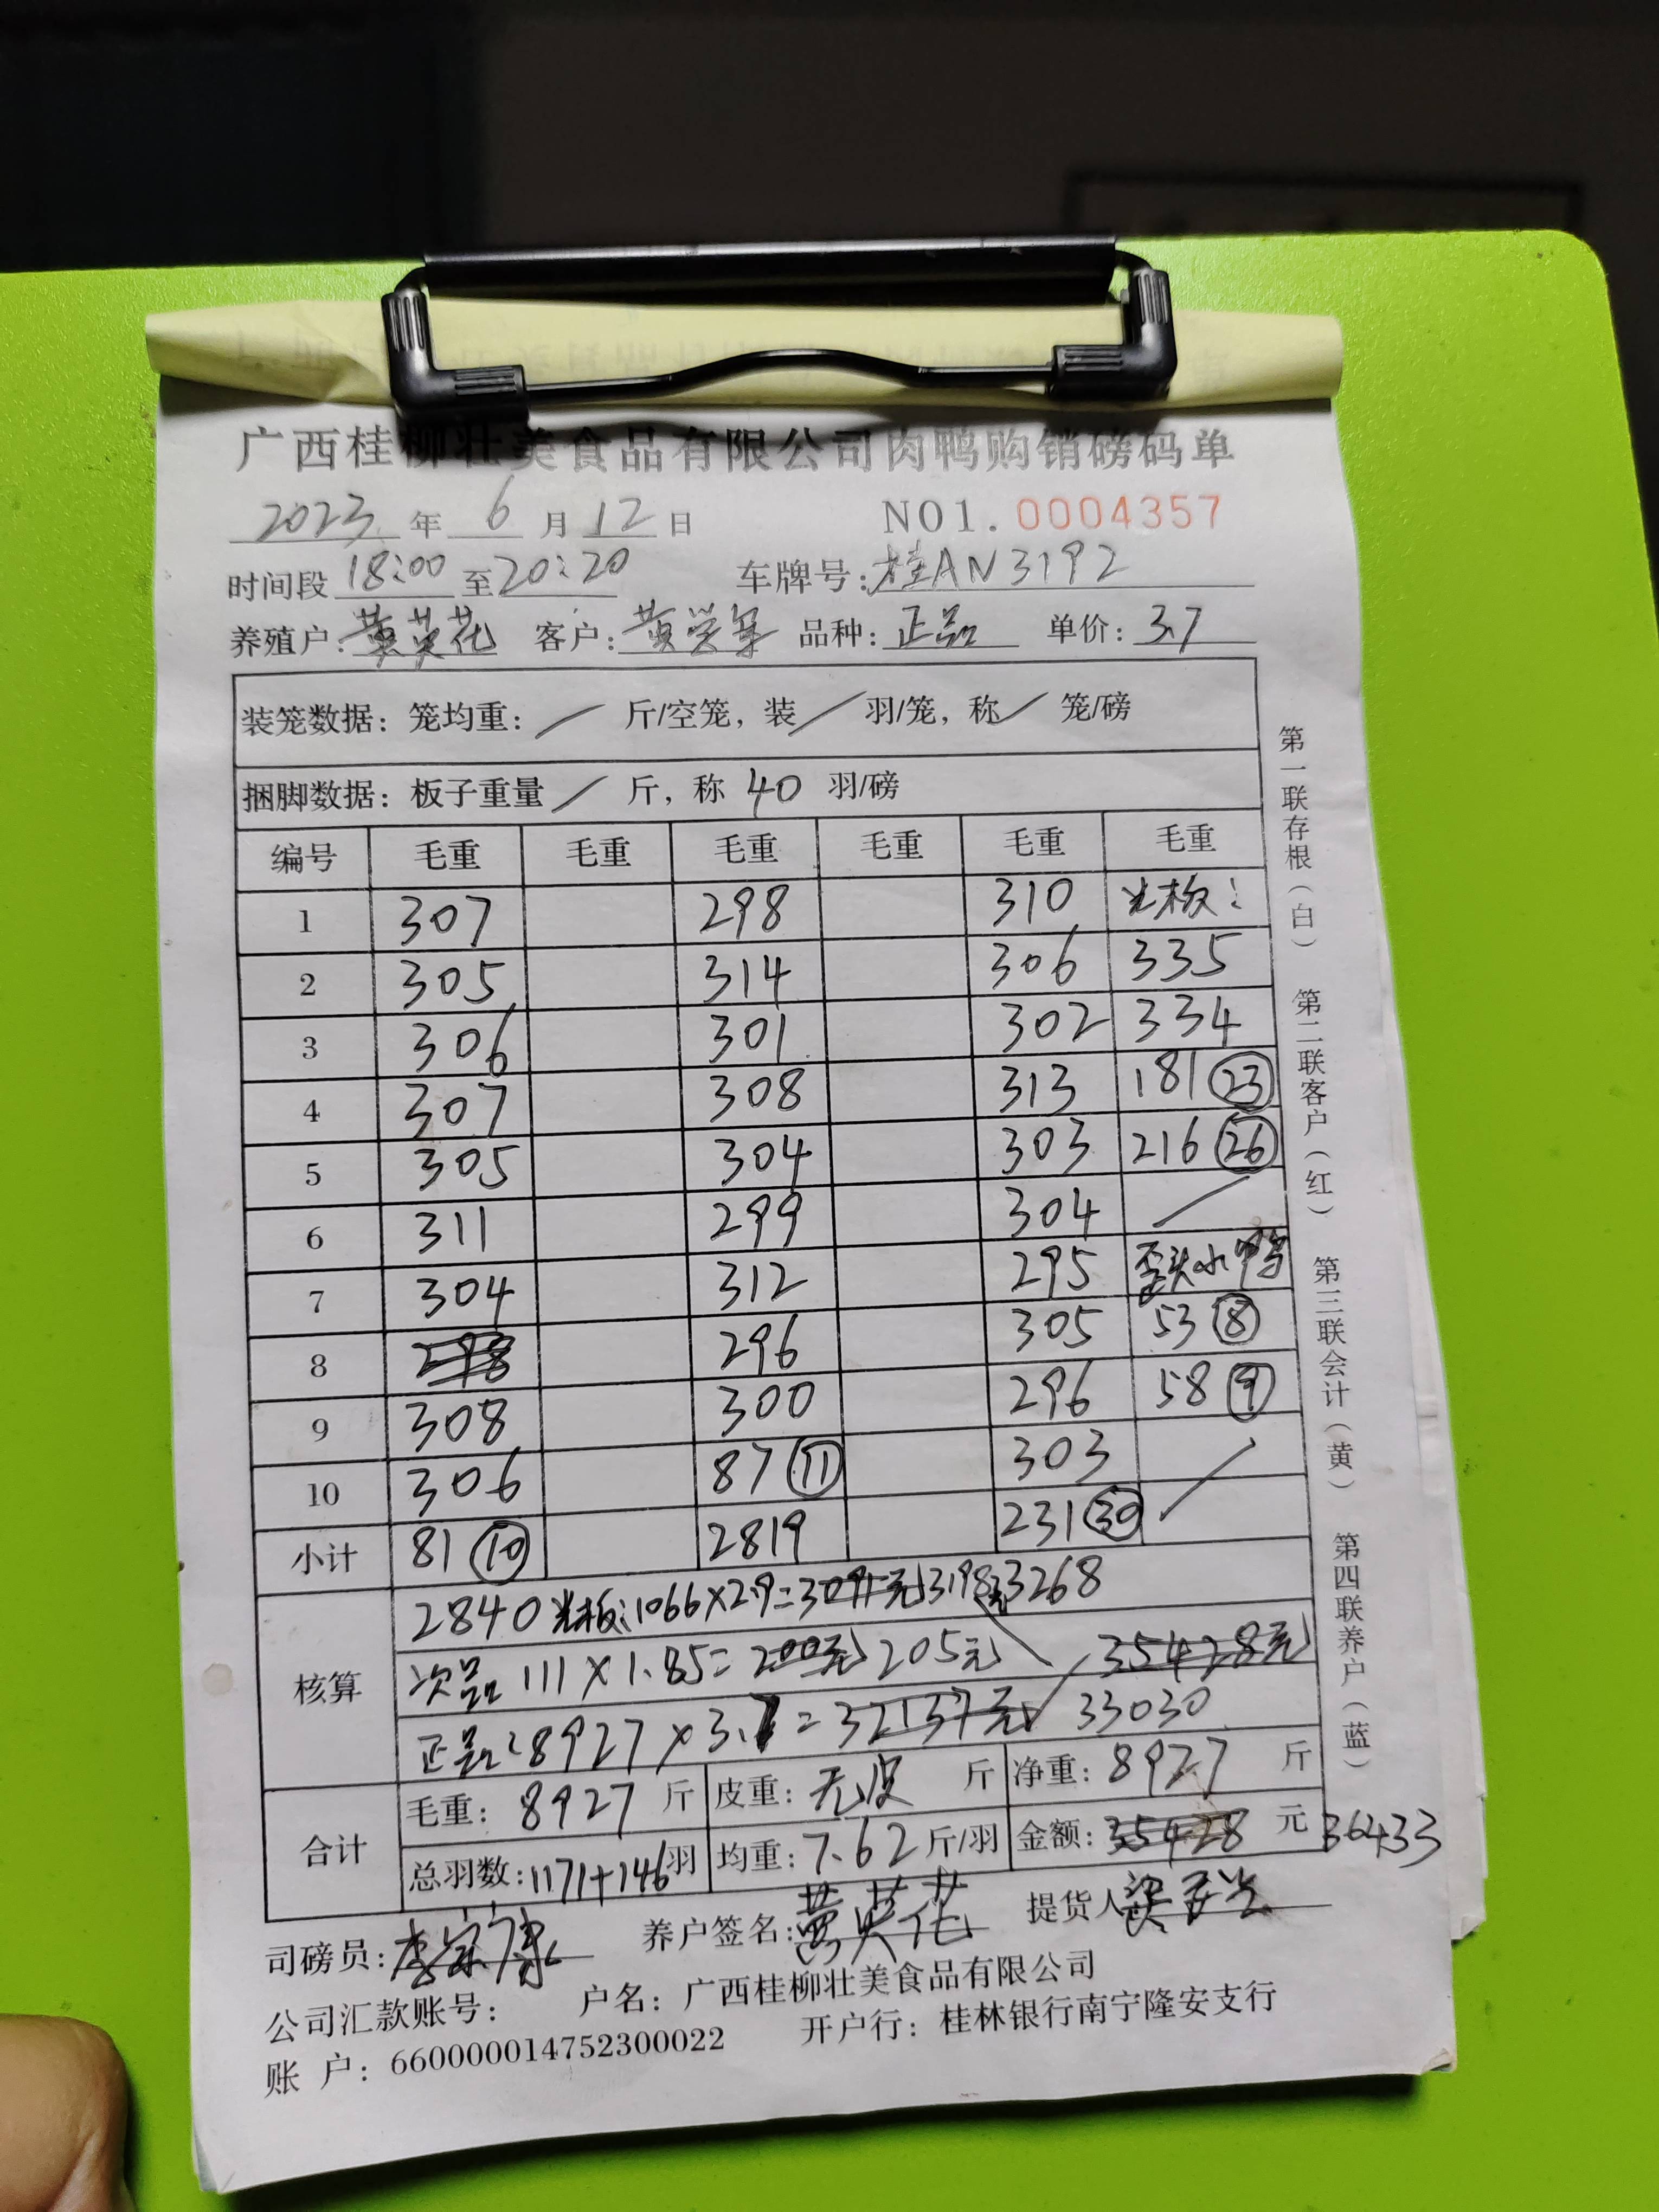 广西桂柳壮美食品有限公司肉鸭购销磅码单
2023 年 6 月 12 日 NO1. 0004357
时间段 18:00 至 20:20 车牌号: 桂AN3192
养殖户: 黄英花 客户: 黄 品种: 正品 单价: 3.7
装笼数据: 笼均重: / 斤/空笼, 装 / 羽/笼, 称 / 笼/磅
捆脚数据: 板子重量 / 斤, 称 40 羽/磅
编号 毛重 毛重 毛重 毛重 毛重 毛重
1 307 298 310 光板:
2 305 314 306 335
3 306 301 302 334
4 307 308 313 181 23
5 305 304 303 216 26
6 311 299 304 /
7 304 312 295 歪头小鸭
8 298 296 305 53 8
9 308 300 296 58 9
10 306 87 11 303
小计 81 10 2819 231 30
核算
2840 光板: 1066×2.9=3091元 3198元 3268
次品 111×1.85=200元 205元 35428元
正品: 8927×3.7=32137元 33030
合计
毛重: 8927 斤 皮重: 无皮 斤 净重: 8927 斤
总羽数: 1171+146 羽 均重: 7.62 斤/羽 金额: 35428 元 36433
司磅员: 李 康 养户签名: 黄英花 提货人
公司汇款账号: 户名: 广西桂柳壮美食品有限公司
账 户: 660000014752300022 开户行: 桂林银行南宁隆安支行
第一联存根(白) 第二联客户(红) 第三联会计(黄) 第四联养户(蓝)